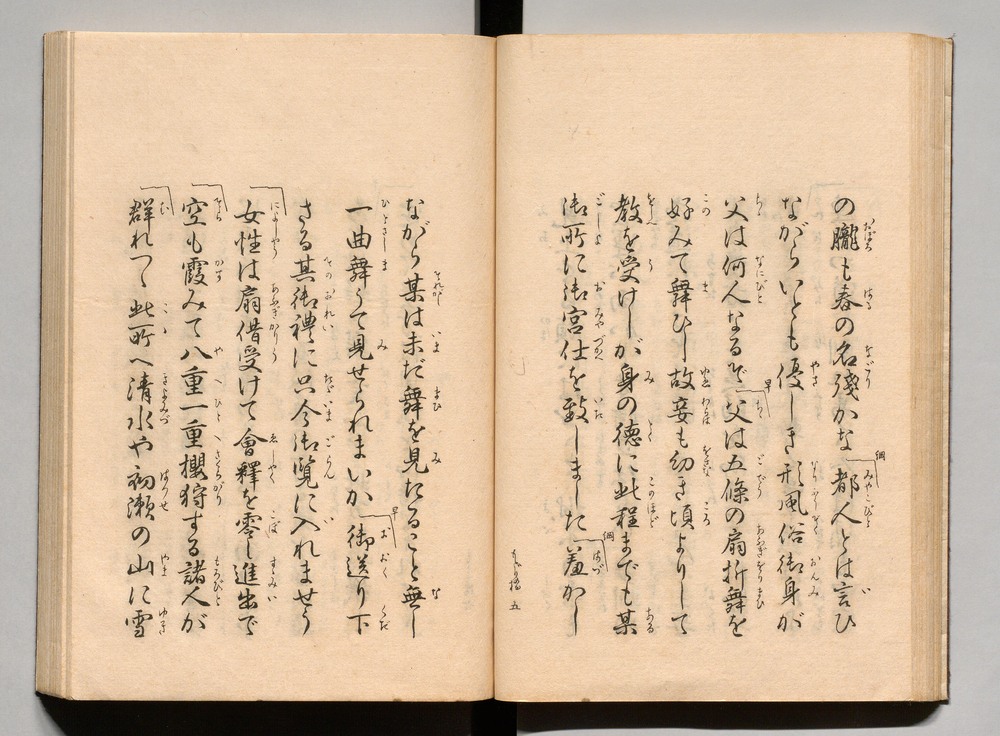 の朧も春の名殘かな 都人とは言ひ
ながらいとも優しき形風俗御身が
父は何人なるぞ 父は五條の扇折舞を
好みて舞ひし故妾も幼き頃よりして
教を受けしが身の徳に此程までも某
御所に御宮仕を致しました 羞かし
もどり橋 五
ながら某は未だ舞を見たること無し
一曲舞うて見せられまいか 御送り下
さる其御禮に只今御覽に入れませう
女性は扇借受けて會釋を零し進出で
空も霞みて八重一重櫻狩する諸人が
群れつゝ此所へ清水や初瀬の山に雪